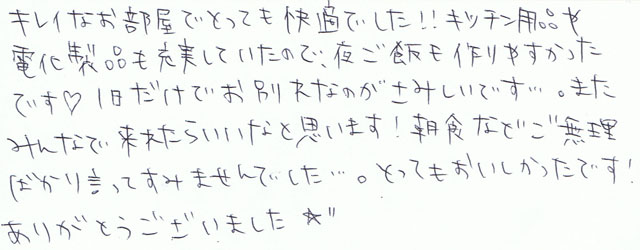 キレイなお部屋でとっても快適でした!! キッチン用品や
電化製品も充実していたので、夜ご飯も作りやすかった
です♡ 1日だけでお別れなのがさみしいです…。また
みんなで来れたらいいなと思います! 朝食などご無理
ばかり言ってすみませんでした…。とってもおいしかったです!
ありがとうございました☆"